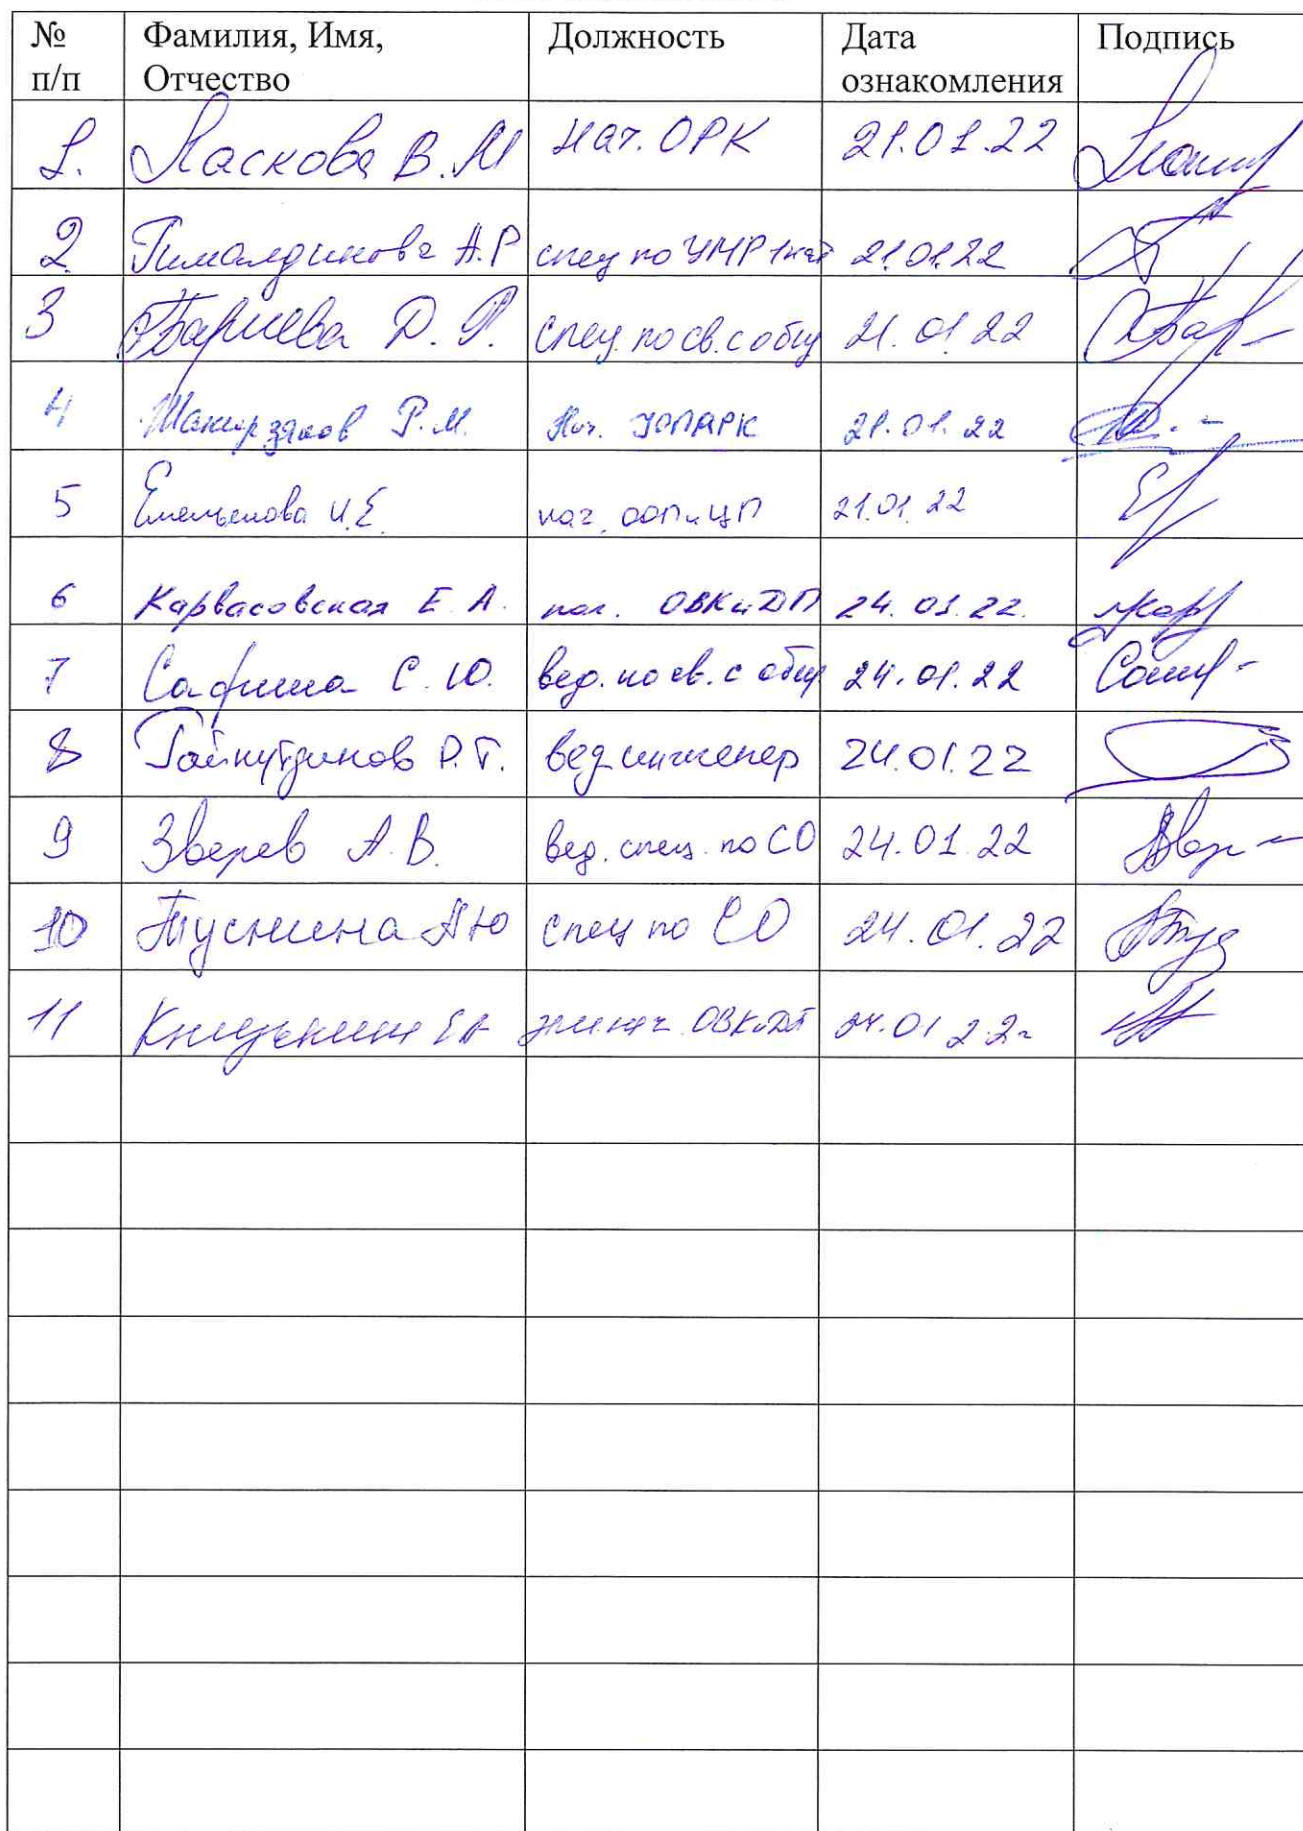 № п/п Фамилия, Имя, Отчество Должность Дата ознакомления Подпись
1. Ласкова В.М нач. ОРК 21.01.22
2 Гималдинова А.Р спец по УМР 1кат 21.01.22
3 Бариева Д. Я. спец. по св. с общ 21.01.22
4 Шакирзянов Р.М. Нач. 21.01.22
5 Емельянова И.Е. нач. ООПиЦП 21.01.22
6 Карвасовская Е.А. нач. ОВКиДП 24.01.22.
7 Сафина С.Ю. вед. по св. с общ 24.01.22
8 Гайнутдинов Р.Т. вед инженер 24.01.22
9 Зверев А.В. вед. спец. по СО 24.01.22
10 Туснина АЮ спец по СО 24.01.22
11 ОВКиДП 24.01 22г